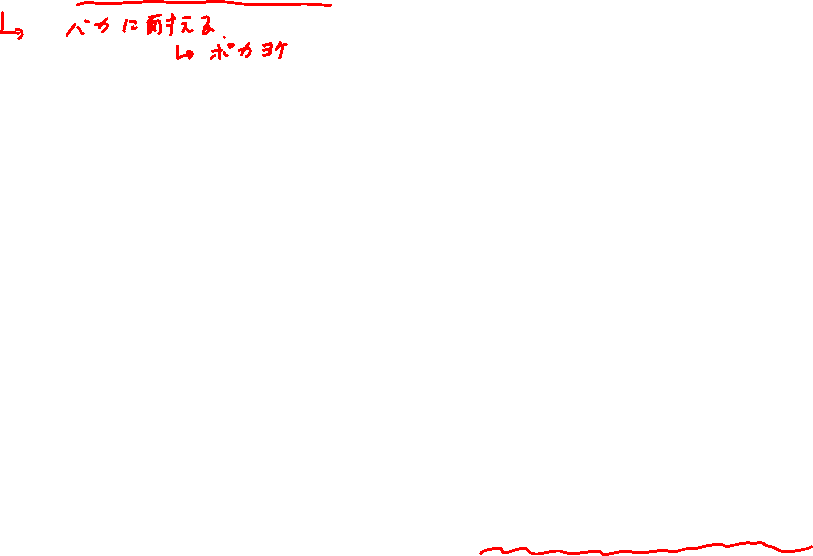 ↳ バカに耐える
↳ ポカヨケ